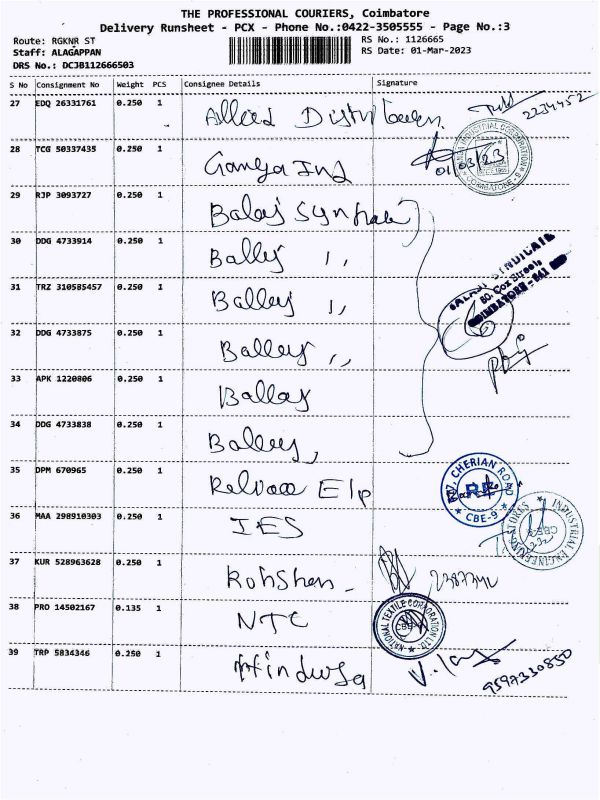 THE PROFESSIONAL COURIERS, Coimbatore
Delivery Runsheet - PCX - Phone No.:0422-3505555 - Page No.:3
Route: RGKNR ST
RS No.: 1126665
Staff: ALAGAPPAN
RS Date: 01-Mar-2023
DRS No.: DCJB112666503
S No Consignment No Weight PCS Consignee Details Signature
27 EDQ 26331761 0.250 1 Allied 2234452
28 TCG 50337435 0.250 1 Ganga Ind 01/03/23
INDUSTRIAL CORPORATION
COIMBATORE-9
29 RJP 3093727 0.250 1 Balaj
30 DDG 4733914 0.250 1 Ballej ,,
31 TRZ 310585457 0.250 1 Ballej ,,
SYNDICATE
80, Cox Street,
COIMBATORE - 641
32 DDG 4733875 0.250 1 Ballej ,,
33 APK 1220806 0.250 1 Ballaj
34 DDG 4733838 0.250 1 Ballej,
35 DPM 670965 0.250 1 E/p
CHERIAN ROAD
RE
CBE-9
36 MAA 298910303 0.250 1 IES
INDUSTRIAL ENGINEERING
37 KUR 528963628 0.250 1 Rohshen
38 PRO 14502167 0.135 1 NTC
NATIONAL TEXTILE CORPORATION LTD
39 TRP 5834346 0.250 1 Hinduja 9597330850